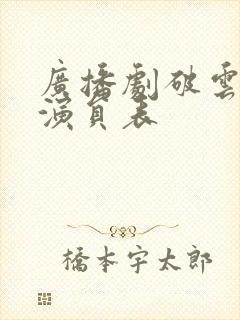 廣播劇破雲
演員表
橋本宇太郎